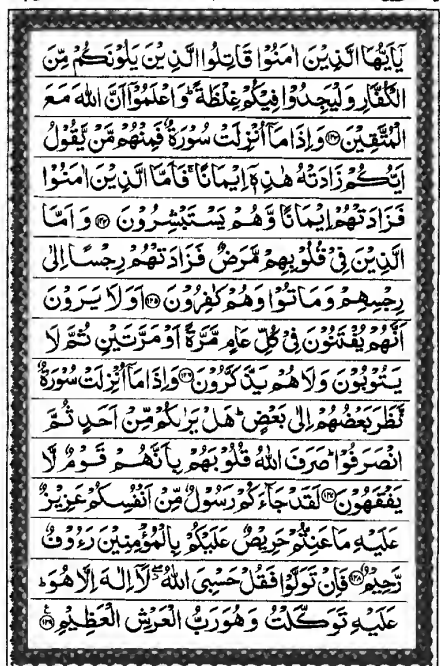 يٰۤاَيُّهَا الَّذِيْنَ اٰمَنُوْا قَاتِلُوا الَّذِيْنَ يَلُوْنَكُمْ مِّنَ
الْكُفَّارِ وَلْيَجِدُوْا فِيْكُمْ غِلْظَةً ؕ وَاعْلَمُوْۤا اَنَّ اللّٰهَ مَعَ
الْمُتَّقِيْنَ ﴿۱۲۳﴾ وَاِذَا مَاۤ اُنْزِلَتْ سُوْرَةٌ فَمِنْهُمْ مَّنْ يَّقُوْلُ
اَيُّكُمْ زَادَتْهُ هٰذِهٖۤ اِيْمَانًا ۚ فَاَمَّا الَّذِيْنَ اٰمَنُوْا
فَزَادَتْهُمْ اِيْمَانًا وَّهُمْ يَسْتَبْشِرُوْنَ ﴿۱۲۴﴾ وَاَمَّا
الَّذِيْنَ فِيْ قُلُوْبِهِمْ مَّرَضٌ فَزَادَتْهُمْ رِجْسًا اِلٰى
رِجْسِهِمْ وَمَاتُوْا وَهُمْ كٰفِرُوْنَ ﴿۱۲۵﴾ اَوَلَا يَرَوْنَ
اَنَّهُمْ يُفْتَنُوْنَ فِيْ كُلِّ عَامٍ مَّرَّةً اَوْ مَرَّتَيْنِ ثُمَّ لَا
يَتُوْبُوْنَ وَلَا هُمْ يَذَّكَّرُوْنَ ﴿۱۲۶﴾ وَاِذَا مَاۤ اُنْزِلَتْ سُوْرَةٌ
نَّظَرَ بَعْضُهُمْ اِلٰى بَعْضٍ ؕ هَلْ يَرٰىكُمْ مِّنْ اَحَدٍ ثُمَّ
انْصَرَفُوْا ؕ صَرَفَ اللّٰهُ قُلُوْبَهُمْ بِاَنَّهُمْ قَوْمٌ لَّا
يَفْقَهُوْنَ ﴿۱۲۷﴾ لَقَدْ جَآءَكُمْ رَسُوْلٌ مِّنْ اَنْفُسِكُمْ عَزِيْزٌ
عَلَيْهِ مَا عَنِتُّمْ حَرِيْصٌ عَلَيْكُمْ بِالْمُؤْمِنِيْنَ رَءُوْفٌ
رَّحِيْمٌ ﴿۱۲۸﴾ فَاِنْ تَوَلَّوْا فَقُلْ حَسْبِيَ اللّٰهُ ۖ لَاۤ اِلٰهَ اِلَّا هُوَ ؕ
عَلَيْهِ تَوَكَّلْتُ وَهُوَ رَبُّ الْعَرْشِ الْعَظِيْمِ ﴿۱۲۹﴾